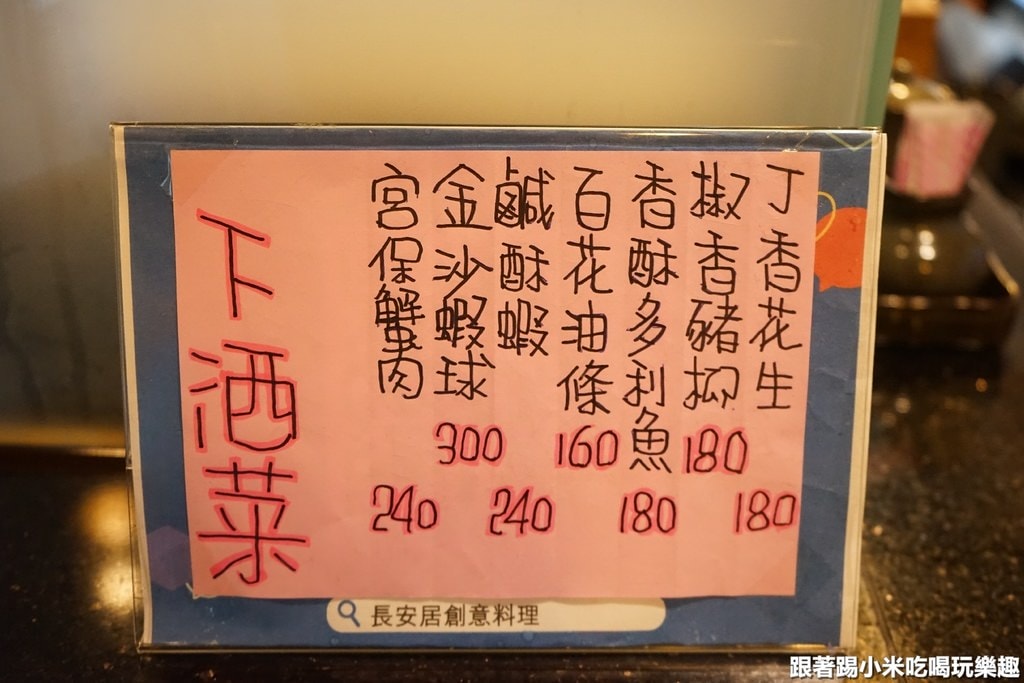 丁香花生 180
椒香豬柳 180
香酥多利魚 180
百花油條 160
鹹酥蝦 240
金沙蝦球 300
宮保蟹肉 240
下酒菜
長安居創意料理
跟著踢小米吃喝玩樂趣